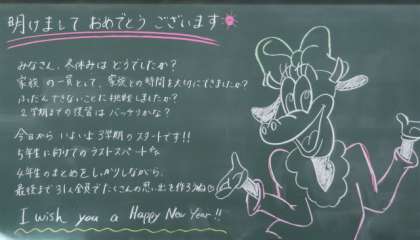 明けまして おめでとう ございます
みなさん、冬休みは どうでしたか?
家族の一員として、家族との時間を大切にできましたか?
ふだんできないことに挑戦しましたか?
2学期までの復習は バッチリかな?
今日から いよいよ 3学期のスタートです!!
5年生に向けてのラストスパート
4年生のまとめをしっかりしながら、
最後まで31人全員でたくさんの思い出を作ろうね
I wish you a Happy New Year!!